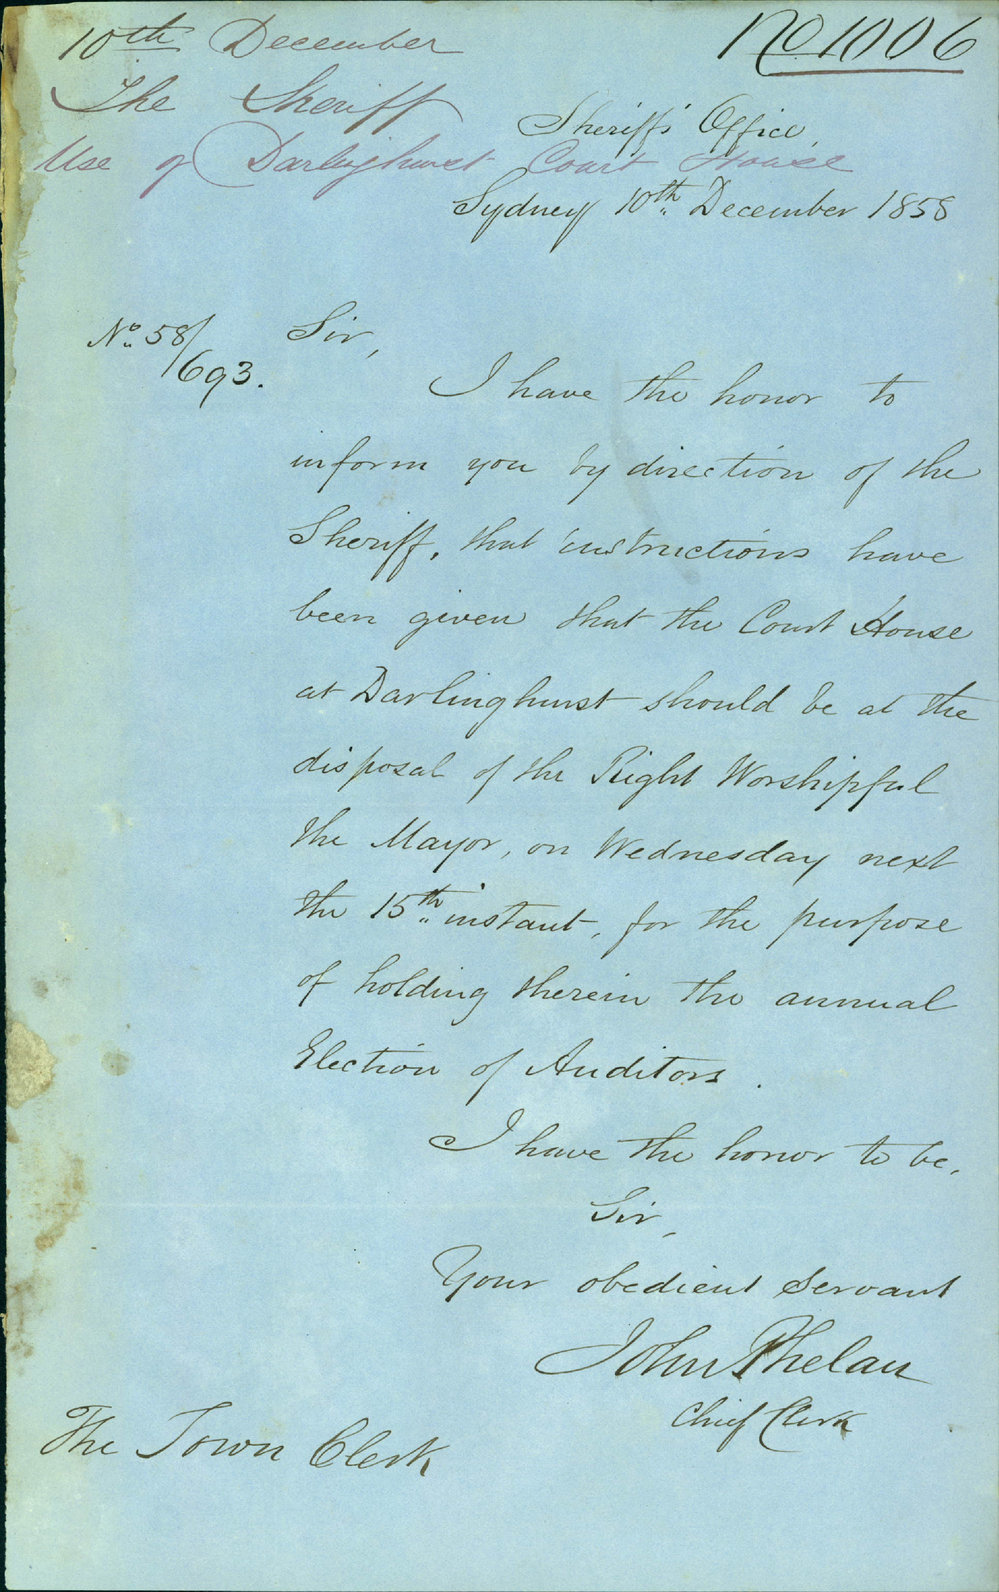 10th December
No 1006
The Sheriff
Use of Darlinghurst Court House
Sheriff's Office,
Sydney 10th December 1858
No. 58/693.
Sir,
I have the honor to
inform you by direction of the
Sheriff, that instructions have
been given that the Court House
at Darlinghurst should be at the
disposal of the Right Worshipful
the Mayor, on Wednesday next
the 15th instant, for the purpose
of holding therein the annual
Election of Auditors.
I have the honor to be,
Sir,
Your obedient Servant
John Phelan
Chief Clerk
The Town Clerk